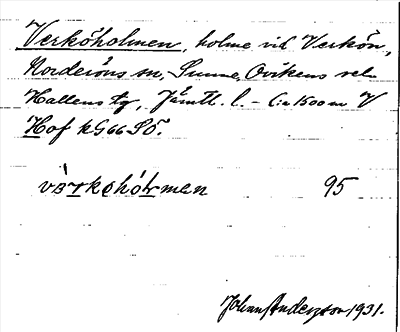 Verköholmen, holme vid Verkön,
Norderöns sn, Sunne, Ovikens och
Hallens tg, Jämtl. l. – C:a 1500 m V
Hof kG66SÖ.
värkəhóləmen 95
Johan Anderzon 1931.